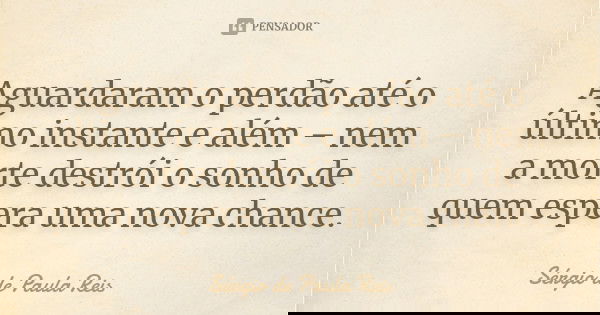 PENSADOR
Aguardaram o perdão até o
último instante e além – nem
a morte destrói o sonho de
quem espera uma nova chance.
Sérgio de Paula Reis